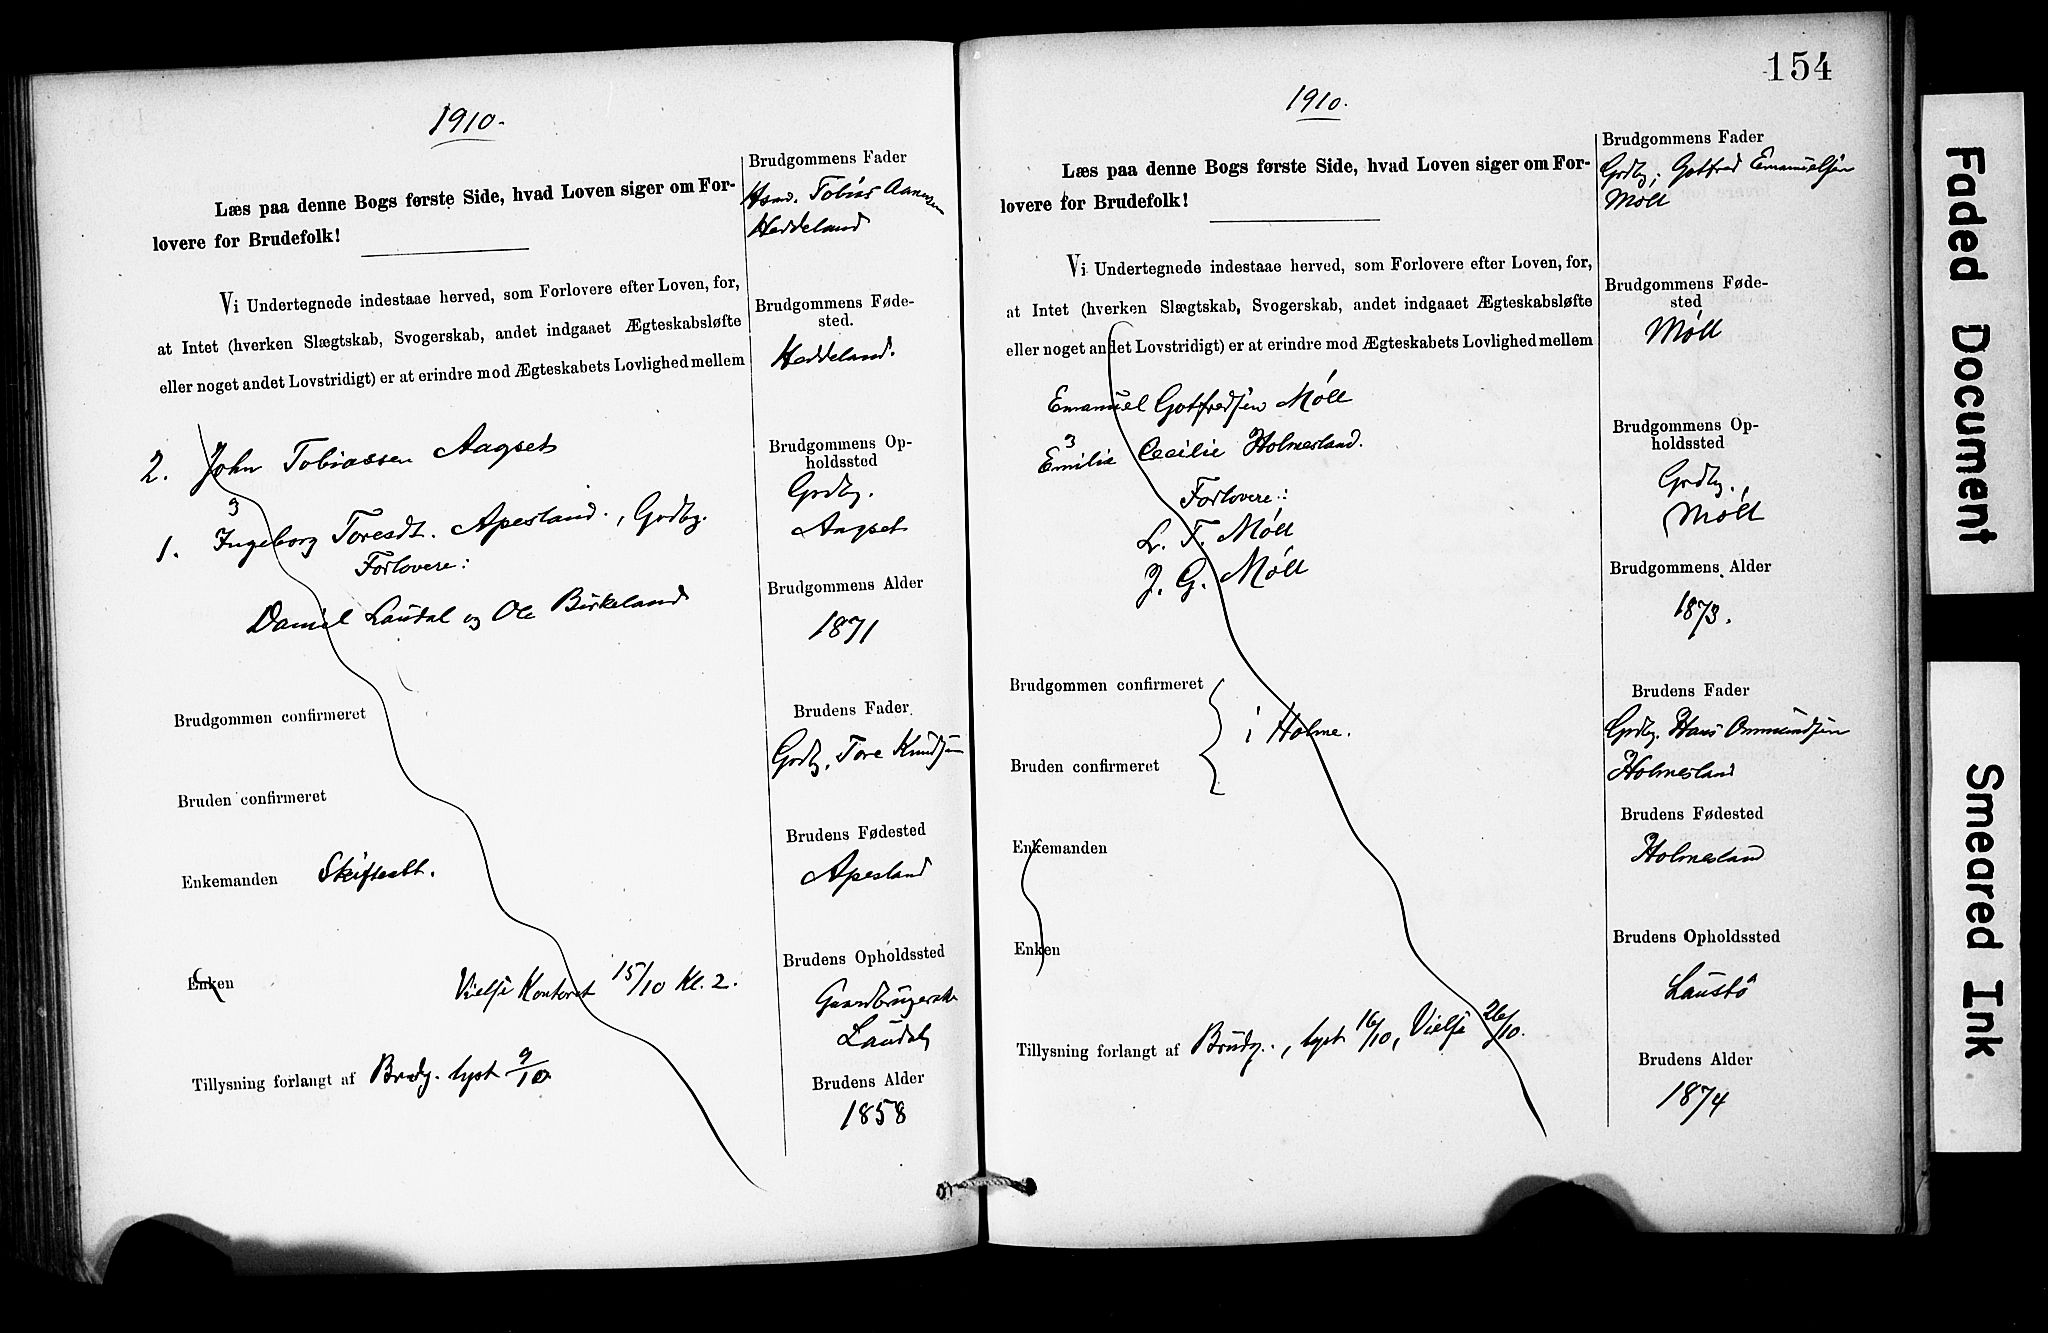 1910.
Læs paa denne Bogs første Side, hvad Loven siger om For-
lovere for Brudefolk!
Vi Undertegnede indestaae herved, som Forlovere efter Loven, for,
at Intet (hverken Slægtskab, Svogerskab, andet indgaaet Ægteskabsløfte
eller noget andet Lovstridigt) er at erindre mod Ægteskabets Lovlighed mellem
2. John Tobiassen Aagset
1. Ingeborg Toresdt. Apesland., Grdbg.
Forlovere:
Daniel Laudal og Ole Birkeland
Brudgommen confirmeret
Bruden confirmeret
Enkemanden Skifteatt.
Enken
Vielse Kontoret 15/10 Kl. 2.
Tillysning forlangt af Brudg. lyst 9/10
Brudgommens Fader
Hsmd. Tobias Aanensen
Heddeland
Brudgommens Føde-
sted.
Heddeland.
Brudgommens Op-
holdssted
Grdbg.
Aagset
Brudgommens Alder
1871
Brudens Fader
Grdbg. Tore Knudsen
Brudens Fødested
Apesland
Brudens Opholdssted
Gaardbrugerske
Laudal
Brudens Alder
1858
154
1910.
Læs paa denne Bogs første Side, hvad Loven siger om For-
lovere for Brudefolk!
Vi Undertegnede indestaae herved, som Forlovere efter Loven, for,
at Intet (hverken Slægtskab, Svogerskab, andet indgaaet Ægteskabsløfte
eller noget andet Lovstridigt) er at erindre mod Ægteskabets Lovlighed mellem
Emanuel Gotfredsen Möll
Emilie Cecilie Holmesland.
Forlovere:
L. T. Möll
J. G. Möll
Brudgommen confirmeret
i Holme.
Bruden confirmeret
Enkemanden
Enken
Tillysning forlangt af Brudg., lyst 16/10, Vielse 26/10.
Brudgommens Fader
Grdbg. Gotfred Emanuelsen
Möll
Brudgommens Føde-
sted
Möll
Brudgommens Op-
holdssted
Grdbg.,
Möll
Brudgommens Alder
1873.
Brudens Fader
Grdbg. Hans Ommundsen
Holmesland
Brudens Fødested
Holmesland
Brudens Opholdssted
Laustö
Brudens Alder
1874
Faded Document
Smeared Ink